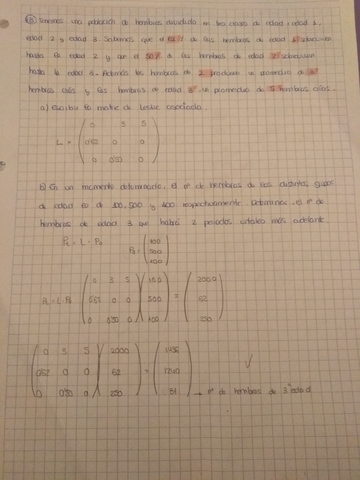 Tenemos una población de hembras dividida en tres clases de edad: edad 1,
edad 2 y edad 3. Sabemos que el 62% de las hembras de edad 1 sobreviven
hasta la edad 2 y que el 50% de las hembras de edad 2 sobreviven
hasta la edad 3. Además las hembras de 2 producen un promedio de 3
hembras crías y las hembras de edad 3 un promedio de 5 hembras crías.
a) Escribir la matriz de Leslie asociada.
L = ( 0 3 5
0'62 0 0
0 0'50 0 )
b) En un momento determinado, el nº de hembras de los distintos grupos
de edad es de 100, 500 y 100 respectivamente. Determinar el nº de
hembras de edad 3 que habrá 2 periodos más adelante.
P₁ = L · P₀
P₀ = ( 100
500
100 )
P₁ = L · P₀ ( 0 3 5 ) ( 100 ) = ( 2000 )
0'62 0 0 500 62
0 0'50 0 100 250
( 0 3 5 ) ( 2000 ) = ( 1436 )
0'62 0 0 62 1240
0 0'50 0 250 31 → nº de hembras de 3ª edad